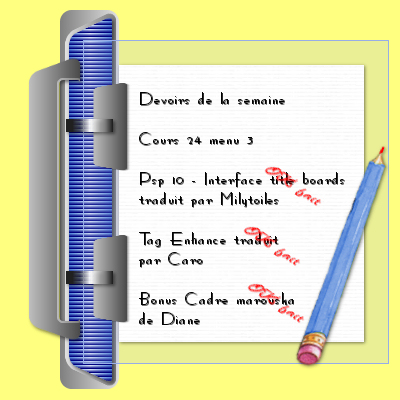 Devoirs de la semaine
Cours 24 menu 3
Psp 10 - Interface title boards
traduit par Milytoiles
Tag Enhance traduit
par Caro
Bonus Cadre marousha
de Diane